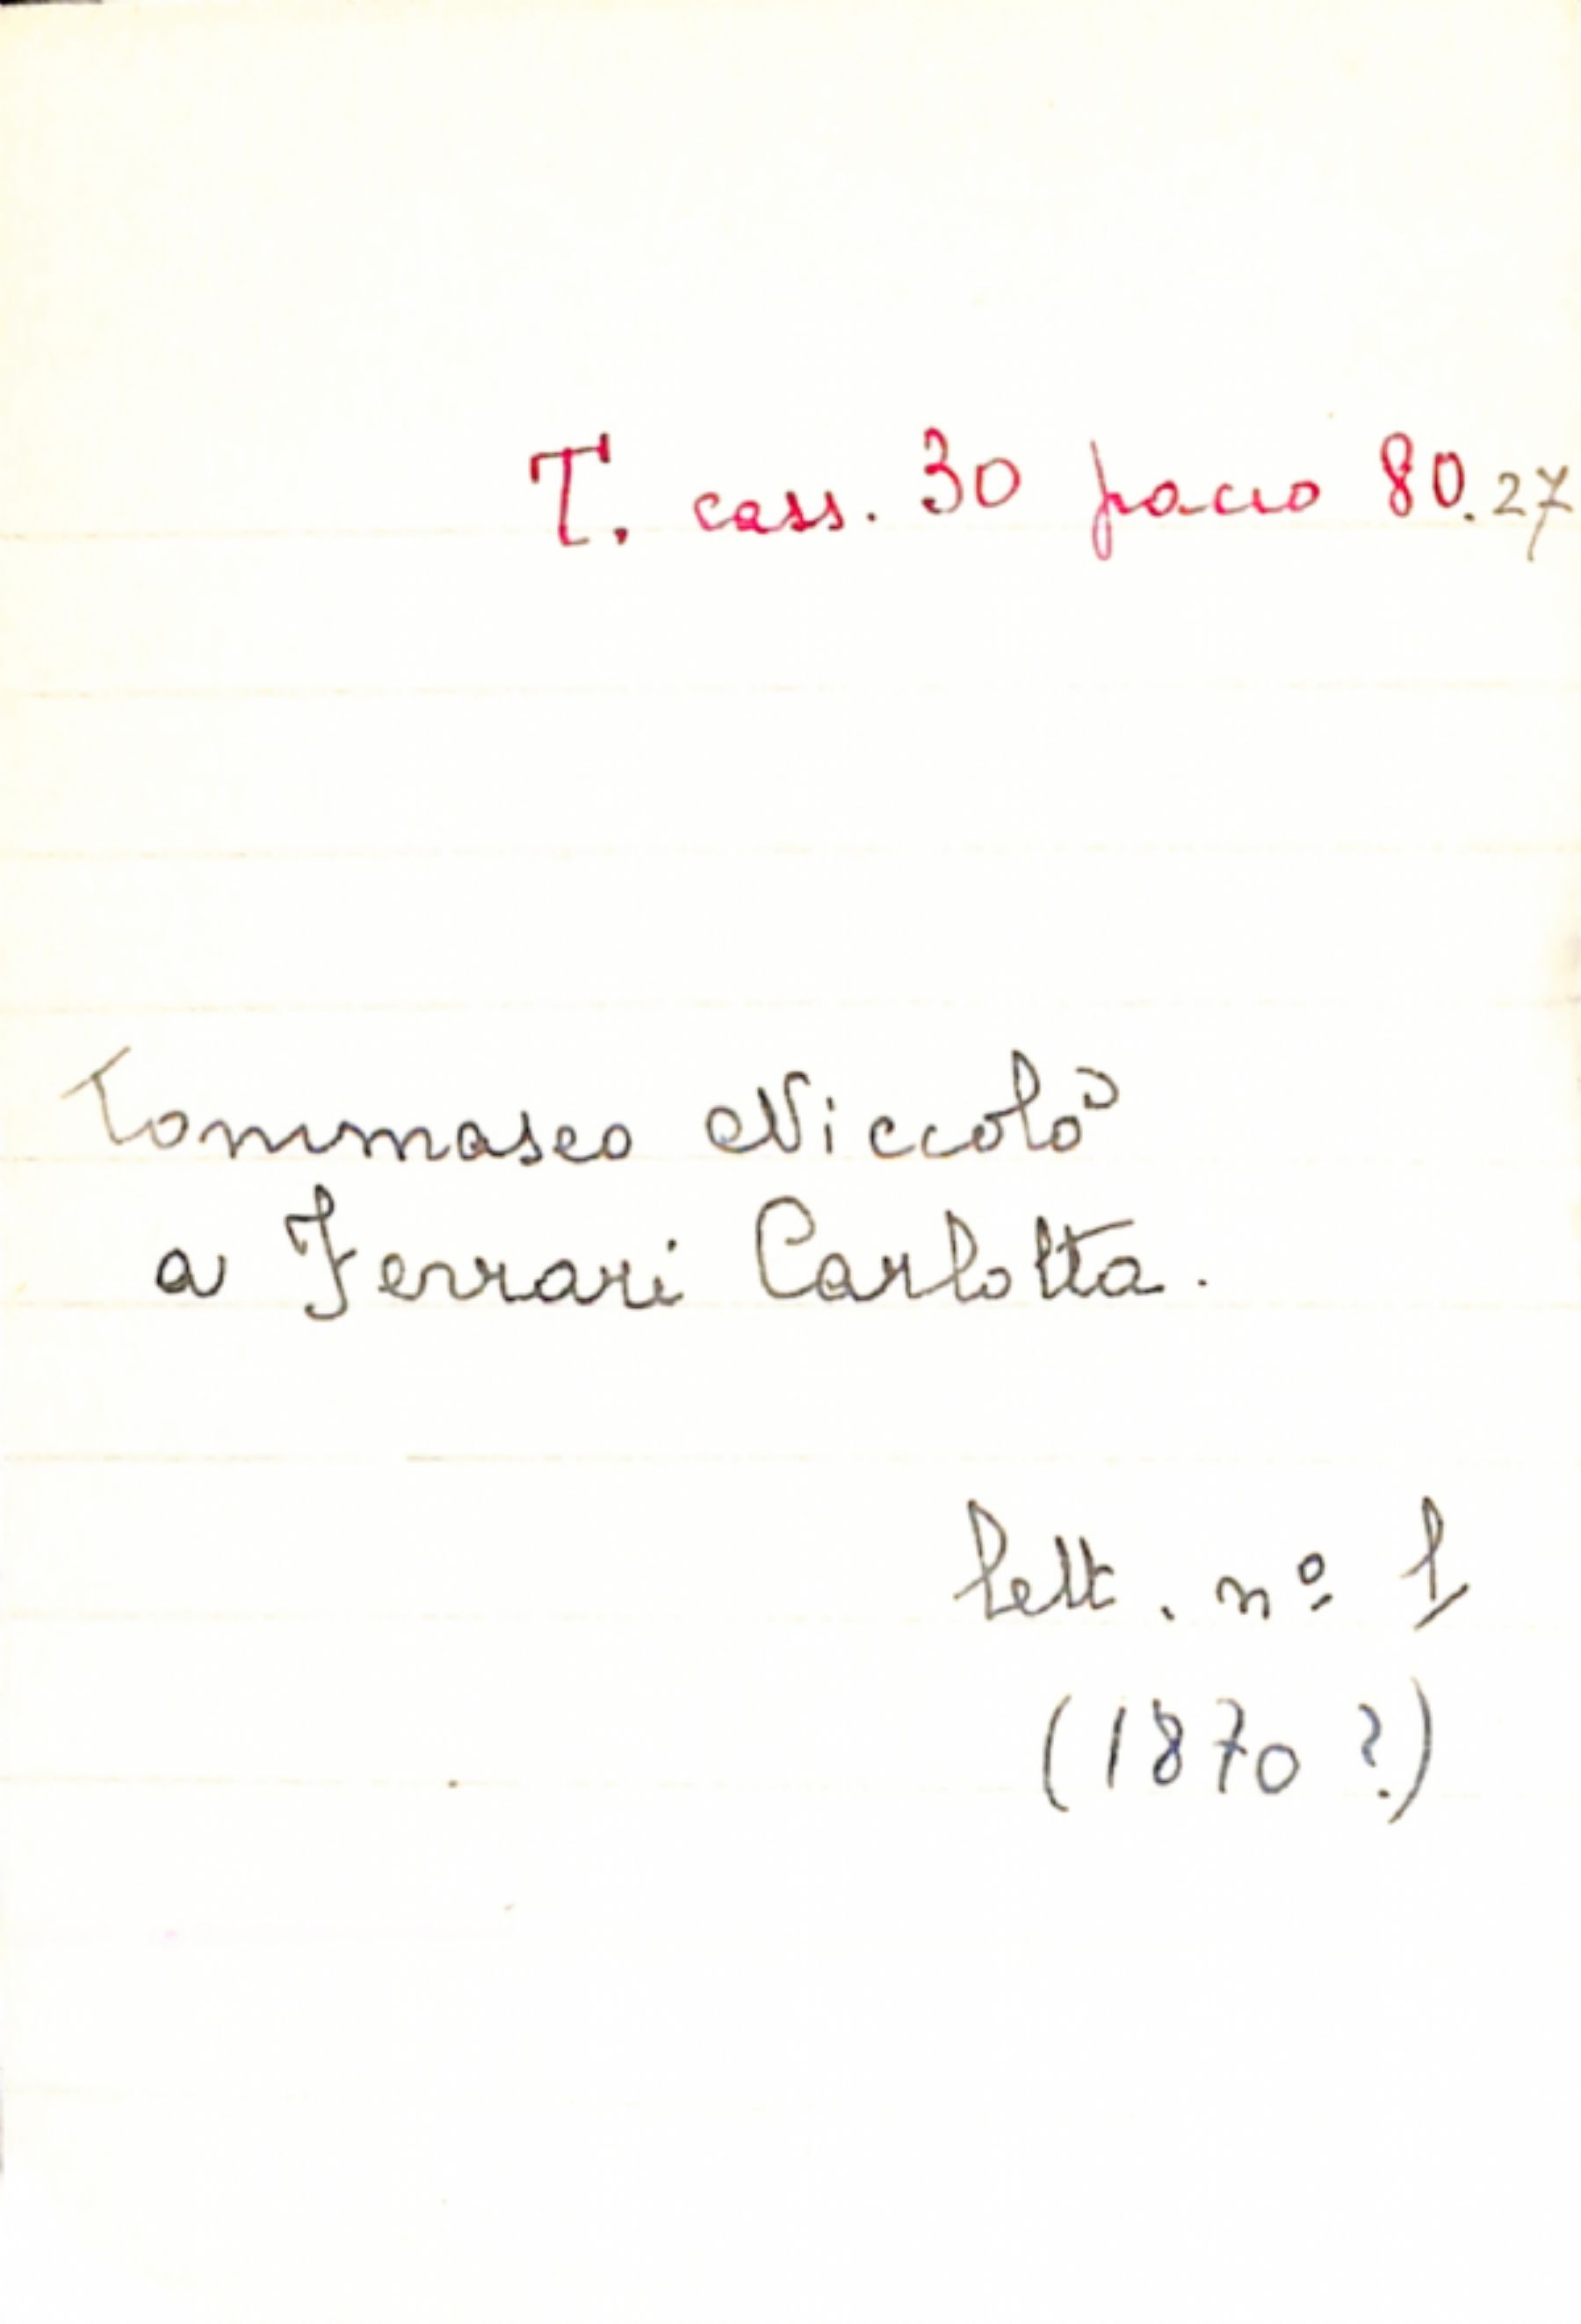 T. cass. 30 pacco 80.27
Tommaseo Niccolò
a Ferrari Carlotta.
lett. nº 1
(1870 ?)